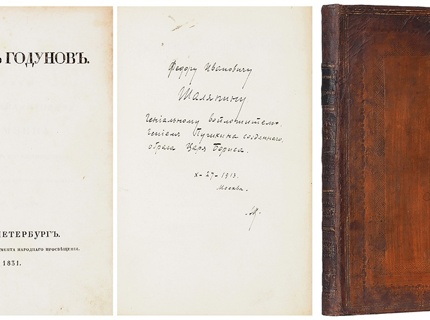 ГОДУНОВЪ.
ПЕТЕРБУРГЪ.
НАРОДНАГО ПРОСВѢЩЕНІЯ.
1831.
Федору Ивановичу
Шаляпину
Геніальному воплотителю
Геніемъ Пушкина созданнаго
образа Царя Бориса.
X-27-1913.
Москва.
М.